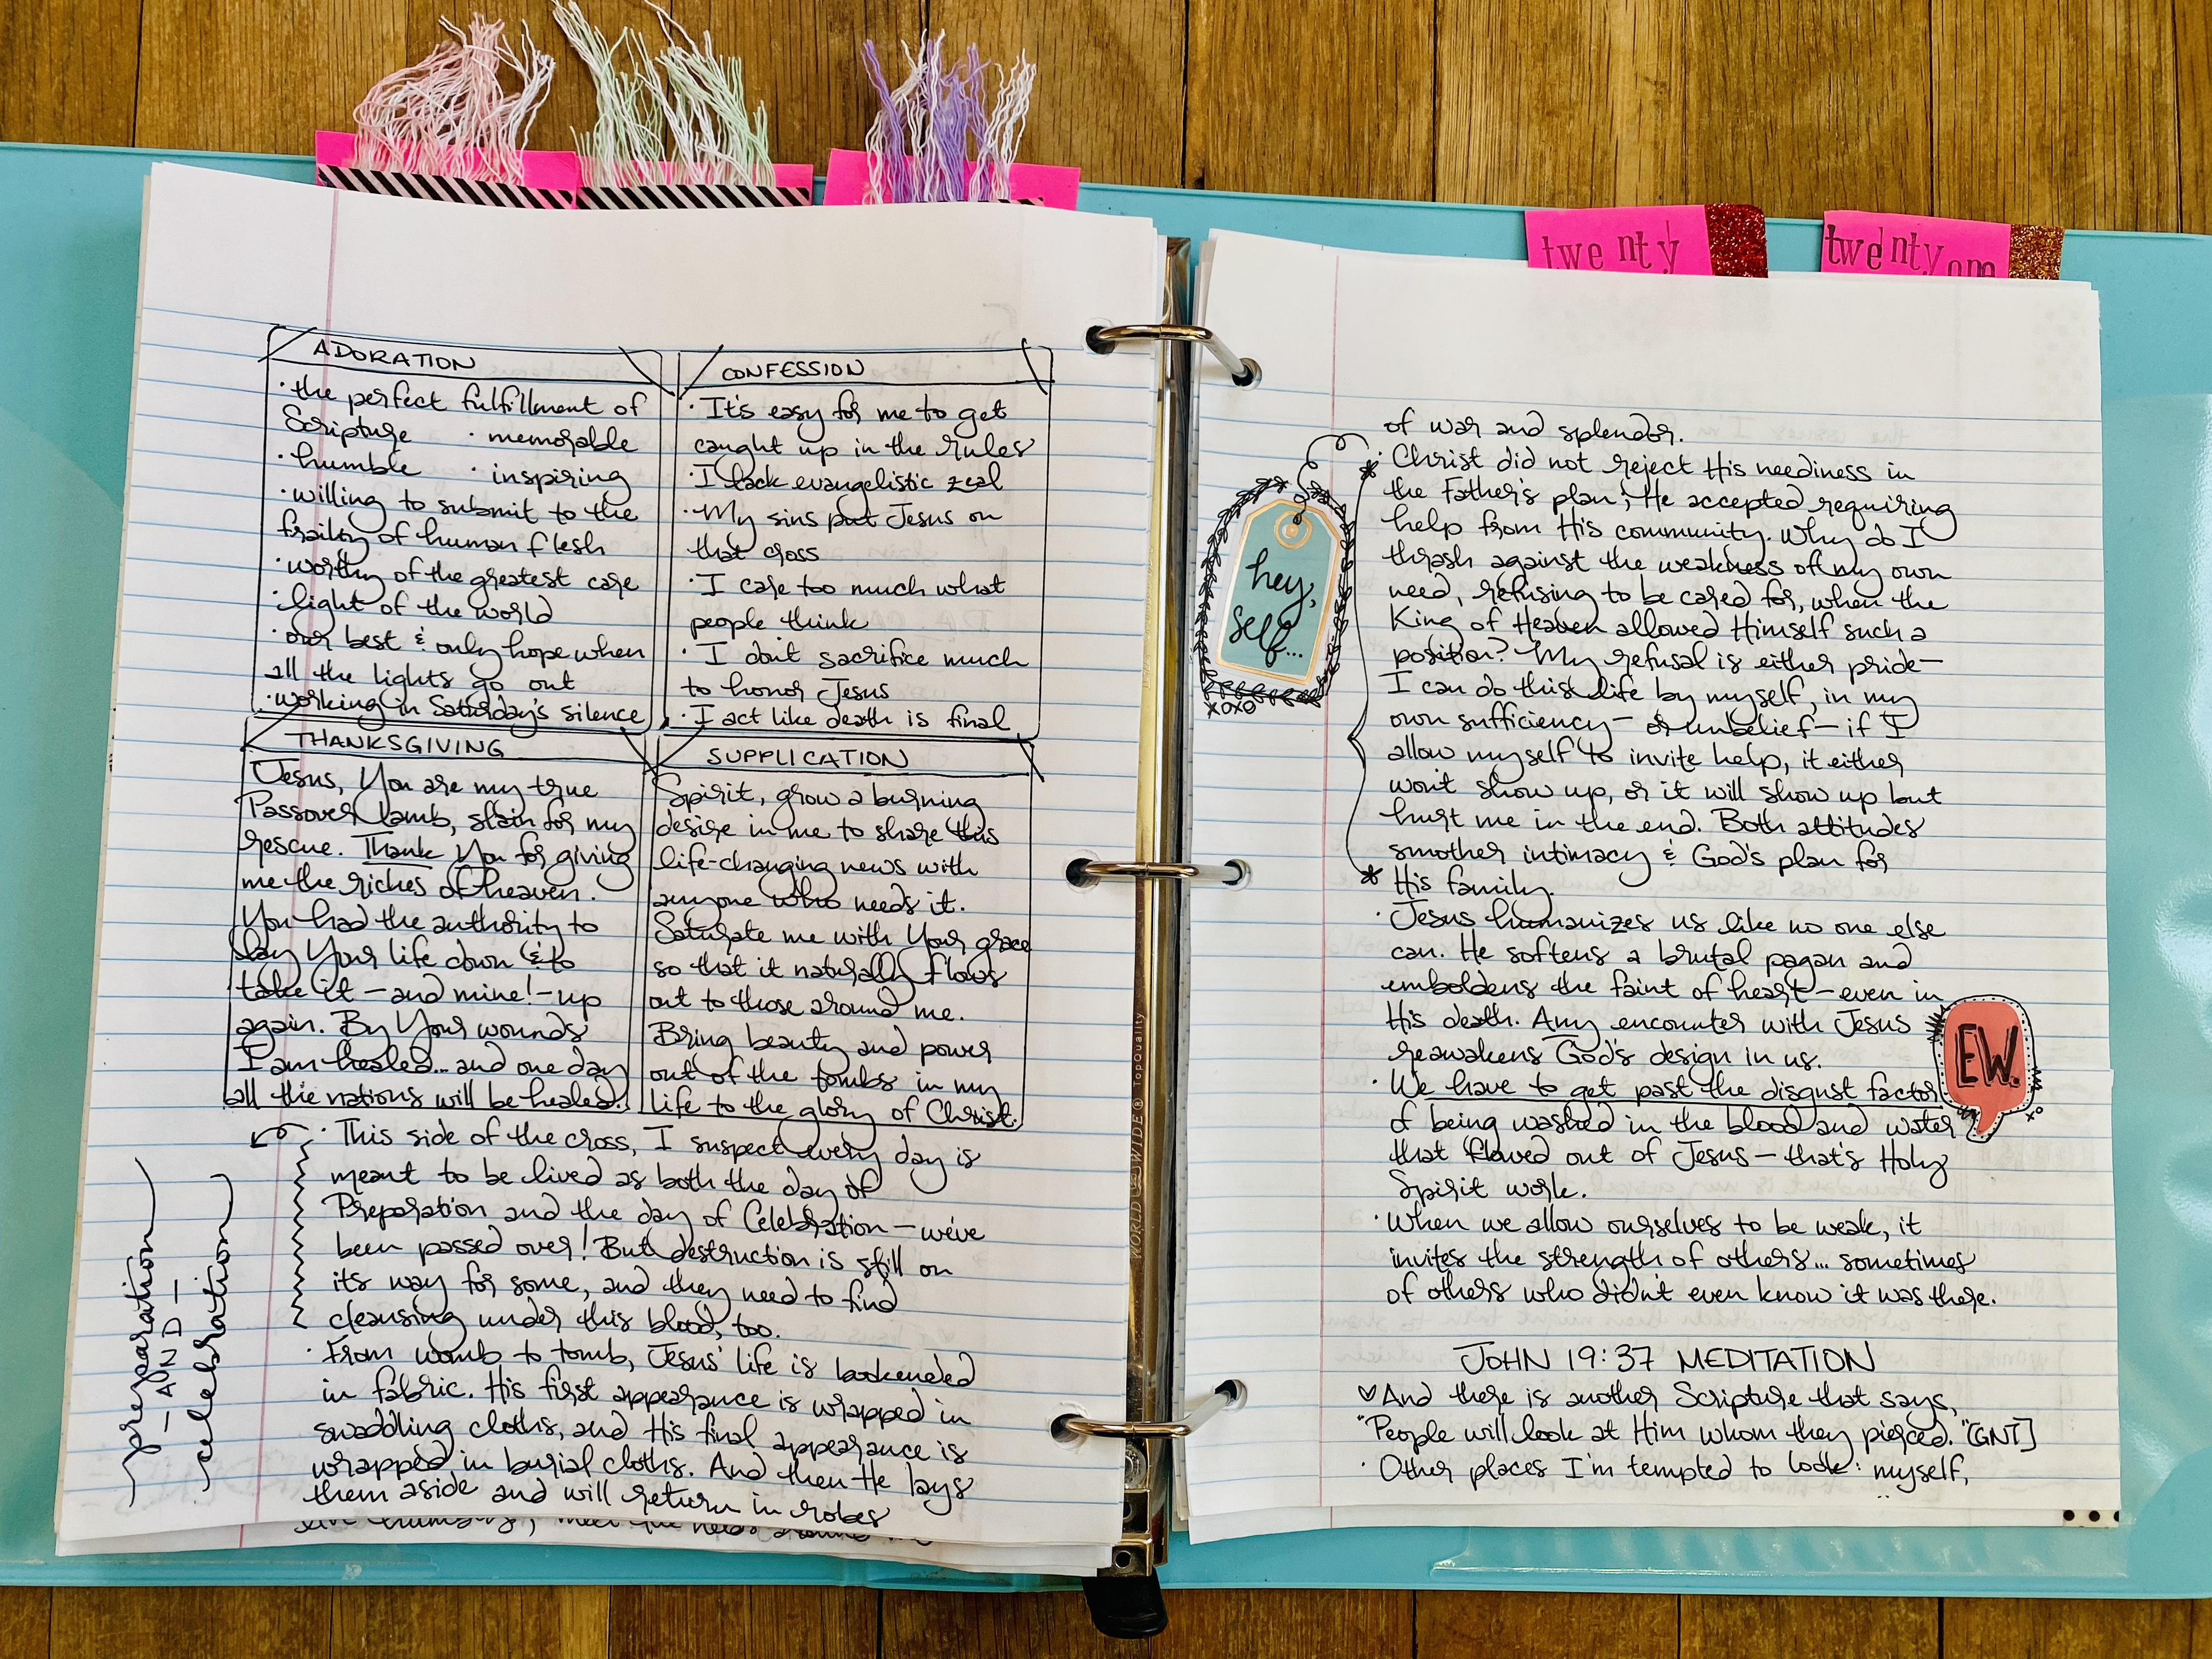 twenty
twenty one
ADORATION
· the perfect fulfillment of
Scripture · memorable
· humble · inspiring
· willing to submit to the
frailty of human flesh
· worthy of the greatest care
· light of the world
· our best & only hope when
all the lights go out
· working in Saturday's silence
CONFESSION
· It's easy for me to get
caught up in the rules
· I lack evangelistic zeal
· My sins put Jesus on
that cross
· I care too much what
people think
· I don't sacrifice much
to honor Jesus
· I act like death is final
THANKSGIVING
Jesus, You are my true
Passover Lamb, slain for my
rescue. Thank You for giving
me the riches of heaven.
You had the authority to
lay Your life down & to
take it – and mine! – up
again. By Your wounds
I am healed... and one day
all the nations will be healed!
SUPPLICATION
Spirit, grow a burning
desire in me to share this
life-changing news with
anyone who needs it.
Saturate me with Your grace
so that it naturally flows
out to those around me.
Bring beauty and power
out of the tombs in my
life to the glory of Christ.
· This side of the cross, I suspect every day is
meant to be lived as both the day of
Preparation and the day of Celebration – we've
been passed over! But destruction is still on
its way for some, and they need to find
cleansing under this blood, too.
· From womb to tomb, Jesus' life is bookended
in fabric. His first appearance is wrapped in
swaddling cloths, and His final appearance is
wrapped in burial cloths. And then He lays
them aside and will return in robes
preparation
– AND –
celebration
WORLD WIDE ® TopQuality
of war and splendor.
· Christ did not reject His neediness in
the Father's plan; He accepted requiring
help from His community. Why do I
thrash against the weakness of my own
need, refusing to be cared for, when the
King of Heaven allowed Himself such a
position? My refusal is either pride –
I can do this life by myself, in my
own sufficiency – or unbelief – if I
allow myself to invite help, it either
won't show up, or it will show up but
hurt me in the end. Both attitudes
smother intimacy & God's plan for
His family.
hey,
self...
xoxo
· Jesus humanizes us like no one else
can. He softens a brutal pagan and
emboldens the faint of heart – even in
His death. Any encounter with Jesus
reawakens God's design in us.
· We have to get past the disgust factor
of being washed in the blood and water
that flowed out of Jesus – that's Holy
Spirit work.
EW.
· When we allow ourselves to be weak, it
invites the strength of others... sometimes
of others who didn't even know it was there.
JOHN 19:37 MEDITATION
♡ And there is another Scripture that says,
"People will look at Him whom they pierced." [GNT]
· Other places I'm tempted to look: myself,